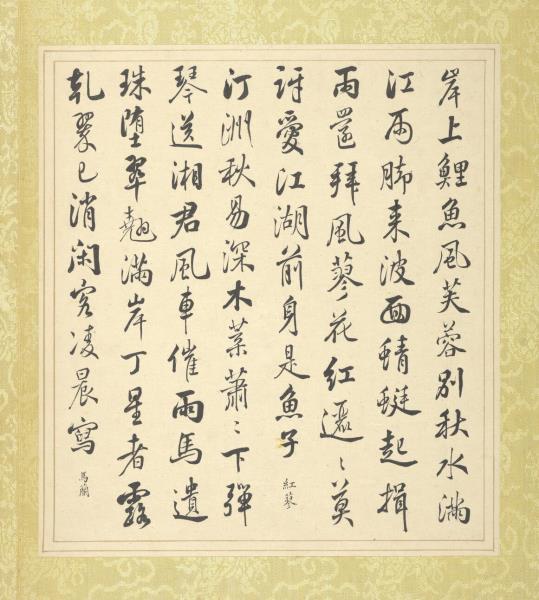 岸上鯉魚風芙蓉別秋水滿
江雨腳来波面蜻蜓起揖
雨還拜風蓼花紅〻莫
訝愛江湖前身是魚子 紅蓼
汀洲秋易深木葉蕭〻下彈
琴送湘君風車催雨馬遺
珠墮翠翹滿岸丁星者露
乹翠已消閑客凌晨寫 馬蘭